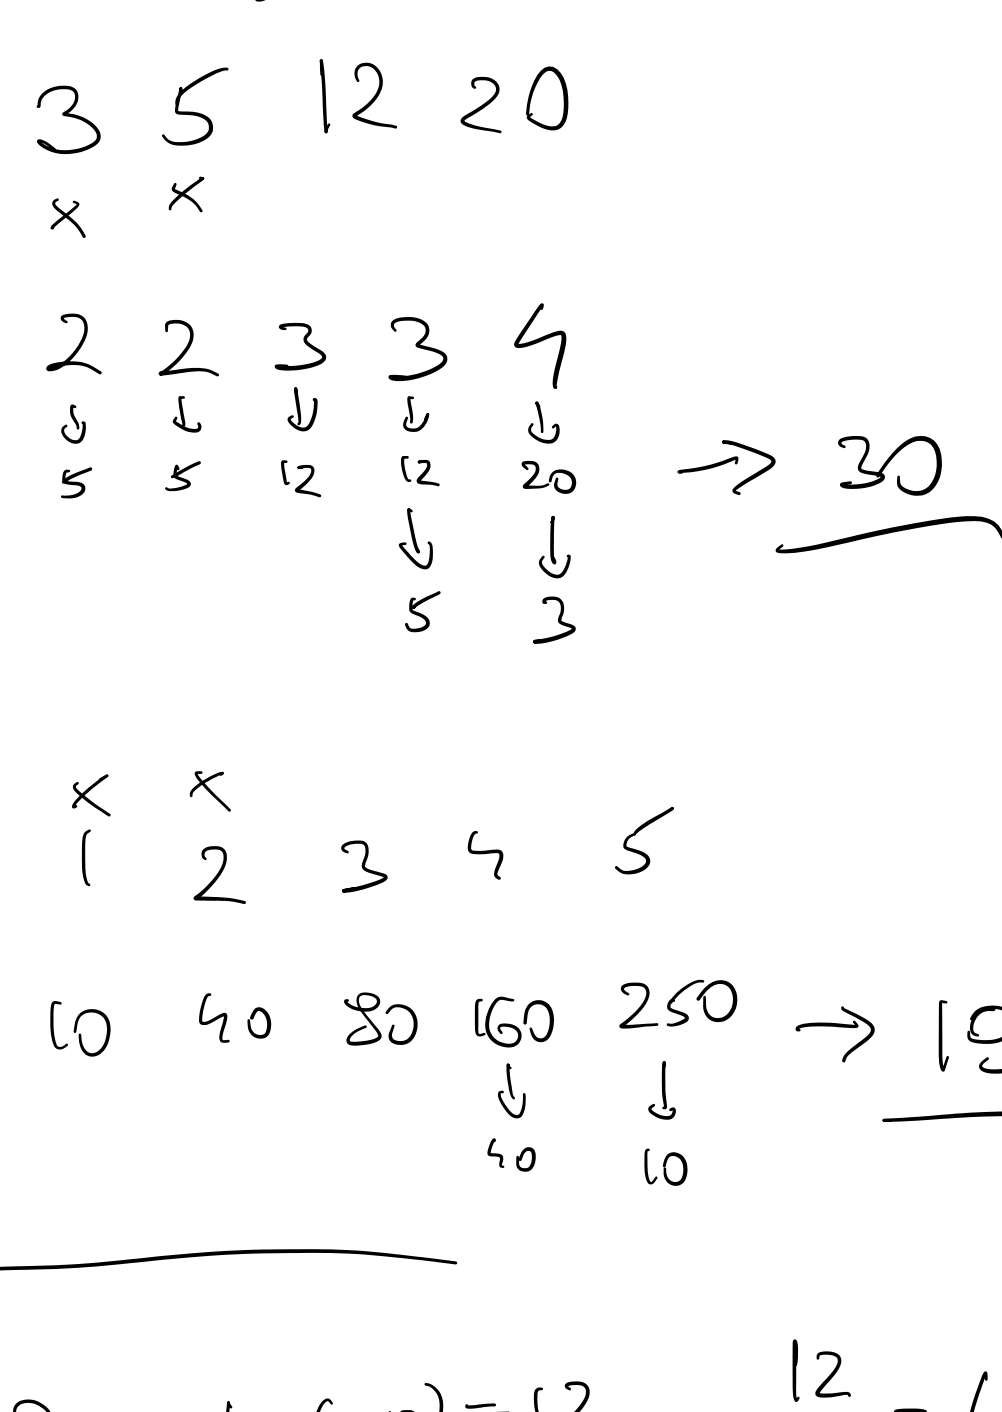 3 5 12 20
x x
2 2 3 3 4
↓ ↓ ↓ ↓ ↓
5 5 12 12 20 → 30
↓ ↓
5 3
x x
1 2 3 4 5
10 40 80 160 250 →
↓ ↓
40 10
12